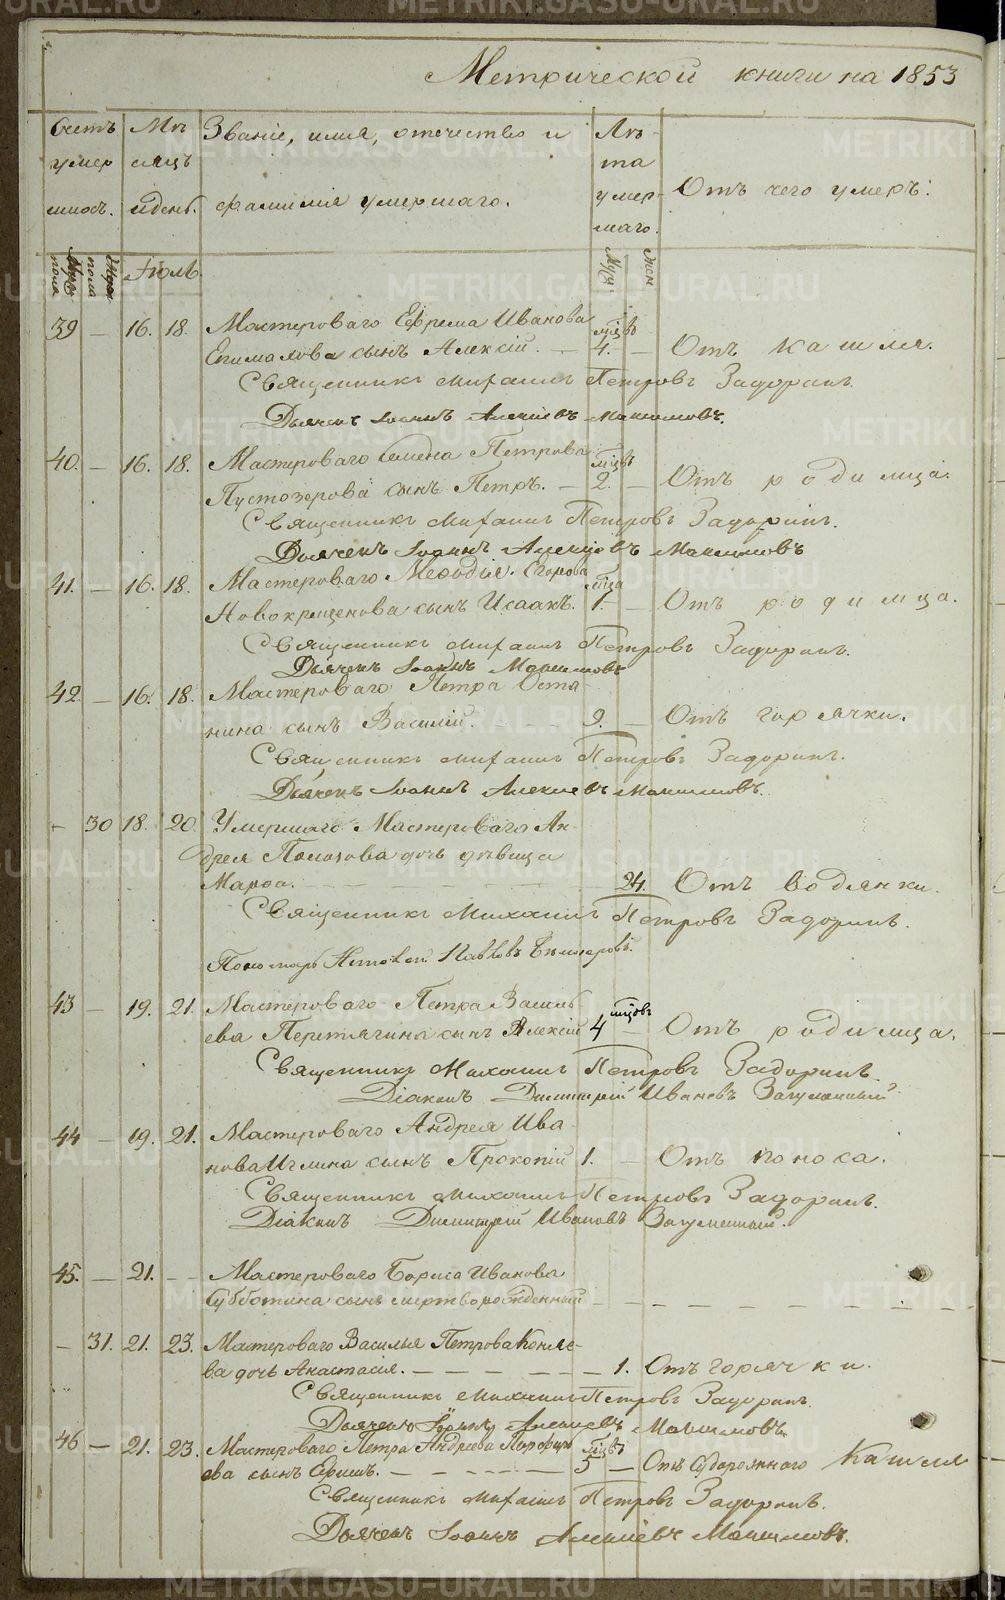 Метрической книги на 1853
Счетъ умер шихъ. Мѣ сяцъ и день. Званіе, имя, отечество и фамилія умершаго. Лѣ та умер- шаго. Отъ чего умеръ:
Муж. пола Жен. пола Іюль Муж Жен
39 — 16. 18. Мастероваго Ефрема Иванова мцовъ
сынъ Алексій. — 4. — Отъ кашля.
Священникъ Михаилъ Петровъ Задоринъ.
Дьячекъ Іоаннъ Алексіевъ Максимовъ.
40. — 16. 18. Мастероваго Семена Петрова мцовъ
Пустозерова сынъ Петръ. — 2. — Отъ родимца.
Священникъ Михаилъ Петровъ Задоринъ.
Дьячекъ Іоаннъ Алексіевъ Максимовъ
41. — 16. 18. Мастероваго Меѳодія Егорова мца
Новокрещенова сынъ Исаакъ. 1. — Отъ родимца.
Священникъ Михаилъ Петровъ Задоринъ.
Дьячекъ Іоаннъ Максимовъ
42 — 16. 18. Мастероваго Петра Оста-
нина сынъ Василій. — — — 9. — Отъ горячки.
Священникъ Михаилъ Петровъ Задоринъ.
Дьячекъ Іоаннъ Алексіевъ Максимовъ.
— 30 18. 20. Умершаго Мастероваго Ан-
дрея Полозова дочь дѣвица
Марѳа. — — — — 24. Отъ водянки.
Священникъ Михаилъ Петровъ Задоринъ.
Пономарь
43 — 19. 21. Мастероваго Петра Василь мцовъ
ева Перетягина сынъ Алексій 4 — Отъ родимца.
Священникъ Михаилъ Петровъ Задоринъ.
Діаконъ Димитрій Ивановъ Загуменный
44 — 19. 21. Мастероваго Андрея Ива
нова Иглина сынъ Прокопій 1. — Отъ поноса.
Священникъ Михаилъ Петровъ Задоринъ.
Діаконъ Димитрій Ивановъ Загуменный.
45. — 21. — Мастероваго Бориса Иванова
Субботина сынъ мертворожденный — — — — — — — —
— 31. 21. 23. Мастероваго Василья Петрова Коняе-
ва дочь Анастасія. — — — — 1. Отъ горячки.
Священникъ Михаилъ Петровъ Задоринъ.
Дьячекъ Іоаннъ Алексіевъ Максимовъ.
46 — 21. 23. Мастероваго Петра Андреева мцовъ
ева сынъ — — — — 5 — Отъ Судорожнаго Кашля
Священникъ Михаилъ Петровъ Задоринъ.
Дьячекъ Іоаннъ Алексіевъ Максимовъ.
METRIKI.GASO-URAL.RU